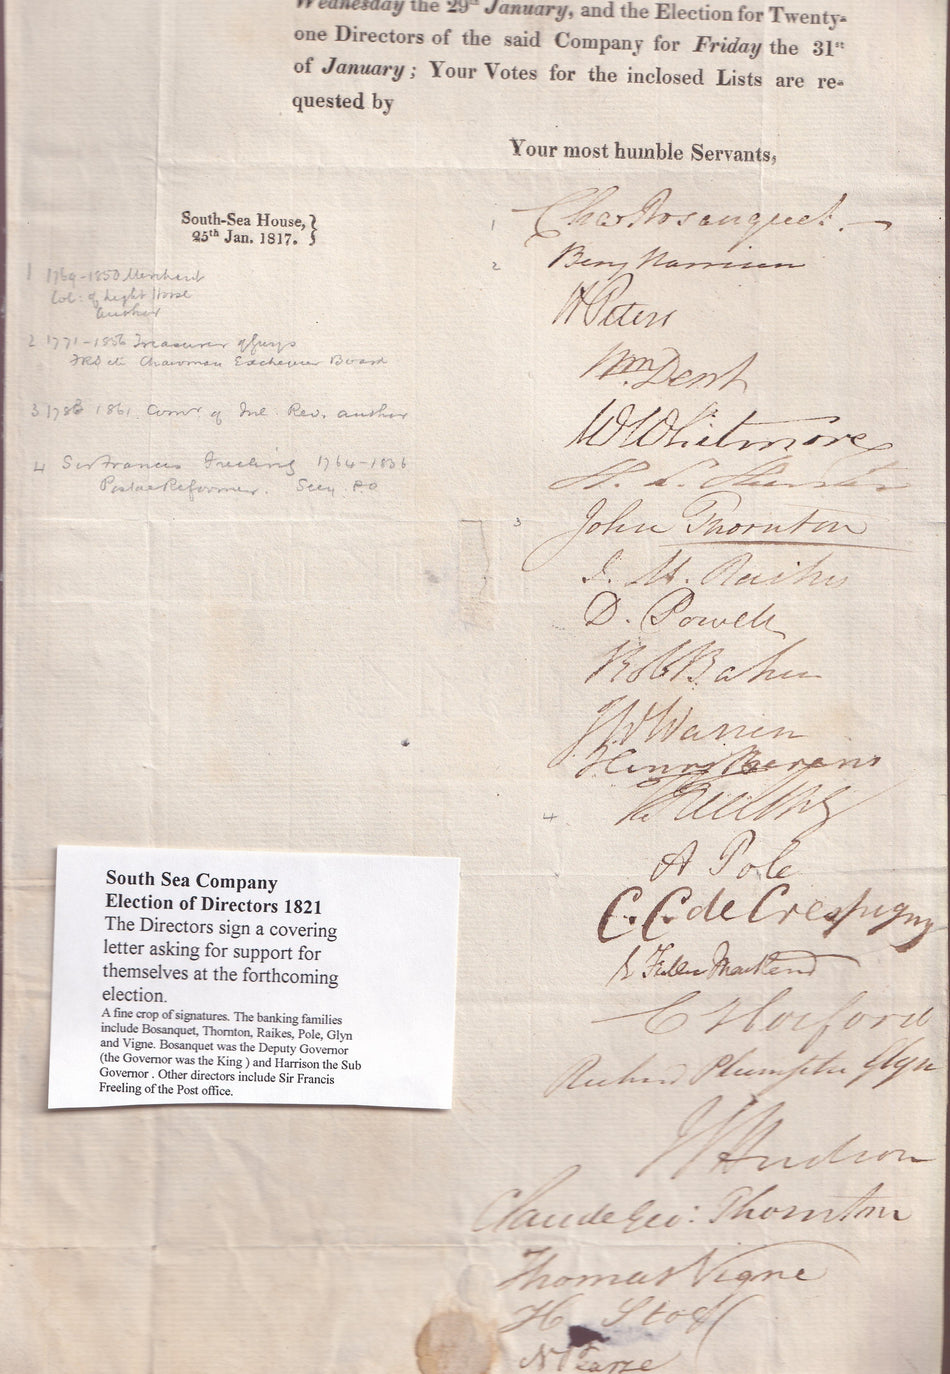 Wednesday the 29th January, and the Election for Twenty-
one Directors of the said Company for Friday the 31st
of January; Your Votes for the inclosed Lists are re-
quested by
Your most humble Servants,
South-Sea House,
25th Jan. 1817.
1 1769-1850 Merchant
Col: of Light Horse
author
2 1771-1856 Treasurer of Guys
FRS etc Chairman Exchequer Board
3 1783 1861 Comr of Inl. Rev. author
4 Sir Francis Freeling 1764-1836
Postal Reformer. Secy. P.O
1 Chas Bosanquet.
2 Benj Harrison
H Peters
Wm Dent
W Whitmore
3 John Thornton
D. Powell
J W Warren
Henry Berens
4 F Freeling
A Pole
C. C. de Crespigny
Fuller Maitland
C Horford
Richard Plumptre Glyn
Hudson
Claude Geo: Thornton
Thomas Vigne
H
N Pearse
South Sea Company
Election of Directors 1821
The Directors sign a covering
letter asking for support for
themselves at the forthcoming
election.
A fine crop of signatures. The banking families
include Bosanquet, Thornton, Raikes, Pole, Glyn
and Vigne. Bosanquet was the Deputy Governor
(the Governor was the King ) and Harrison the Sub
Governor . Other directors include Sir Francis
Freeling of the Post office.